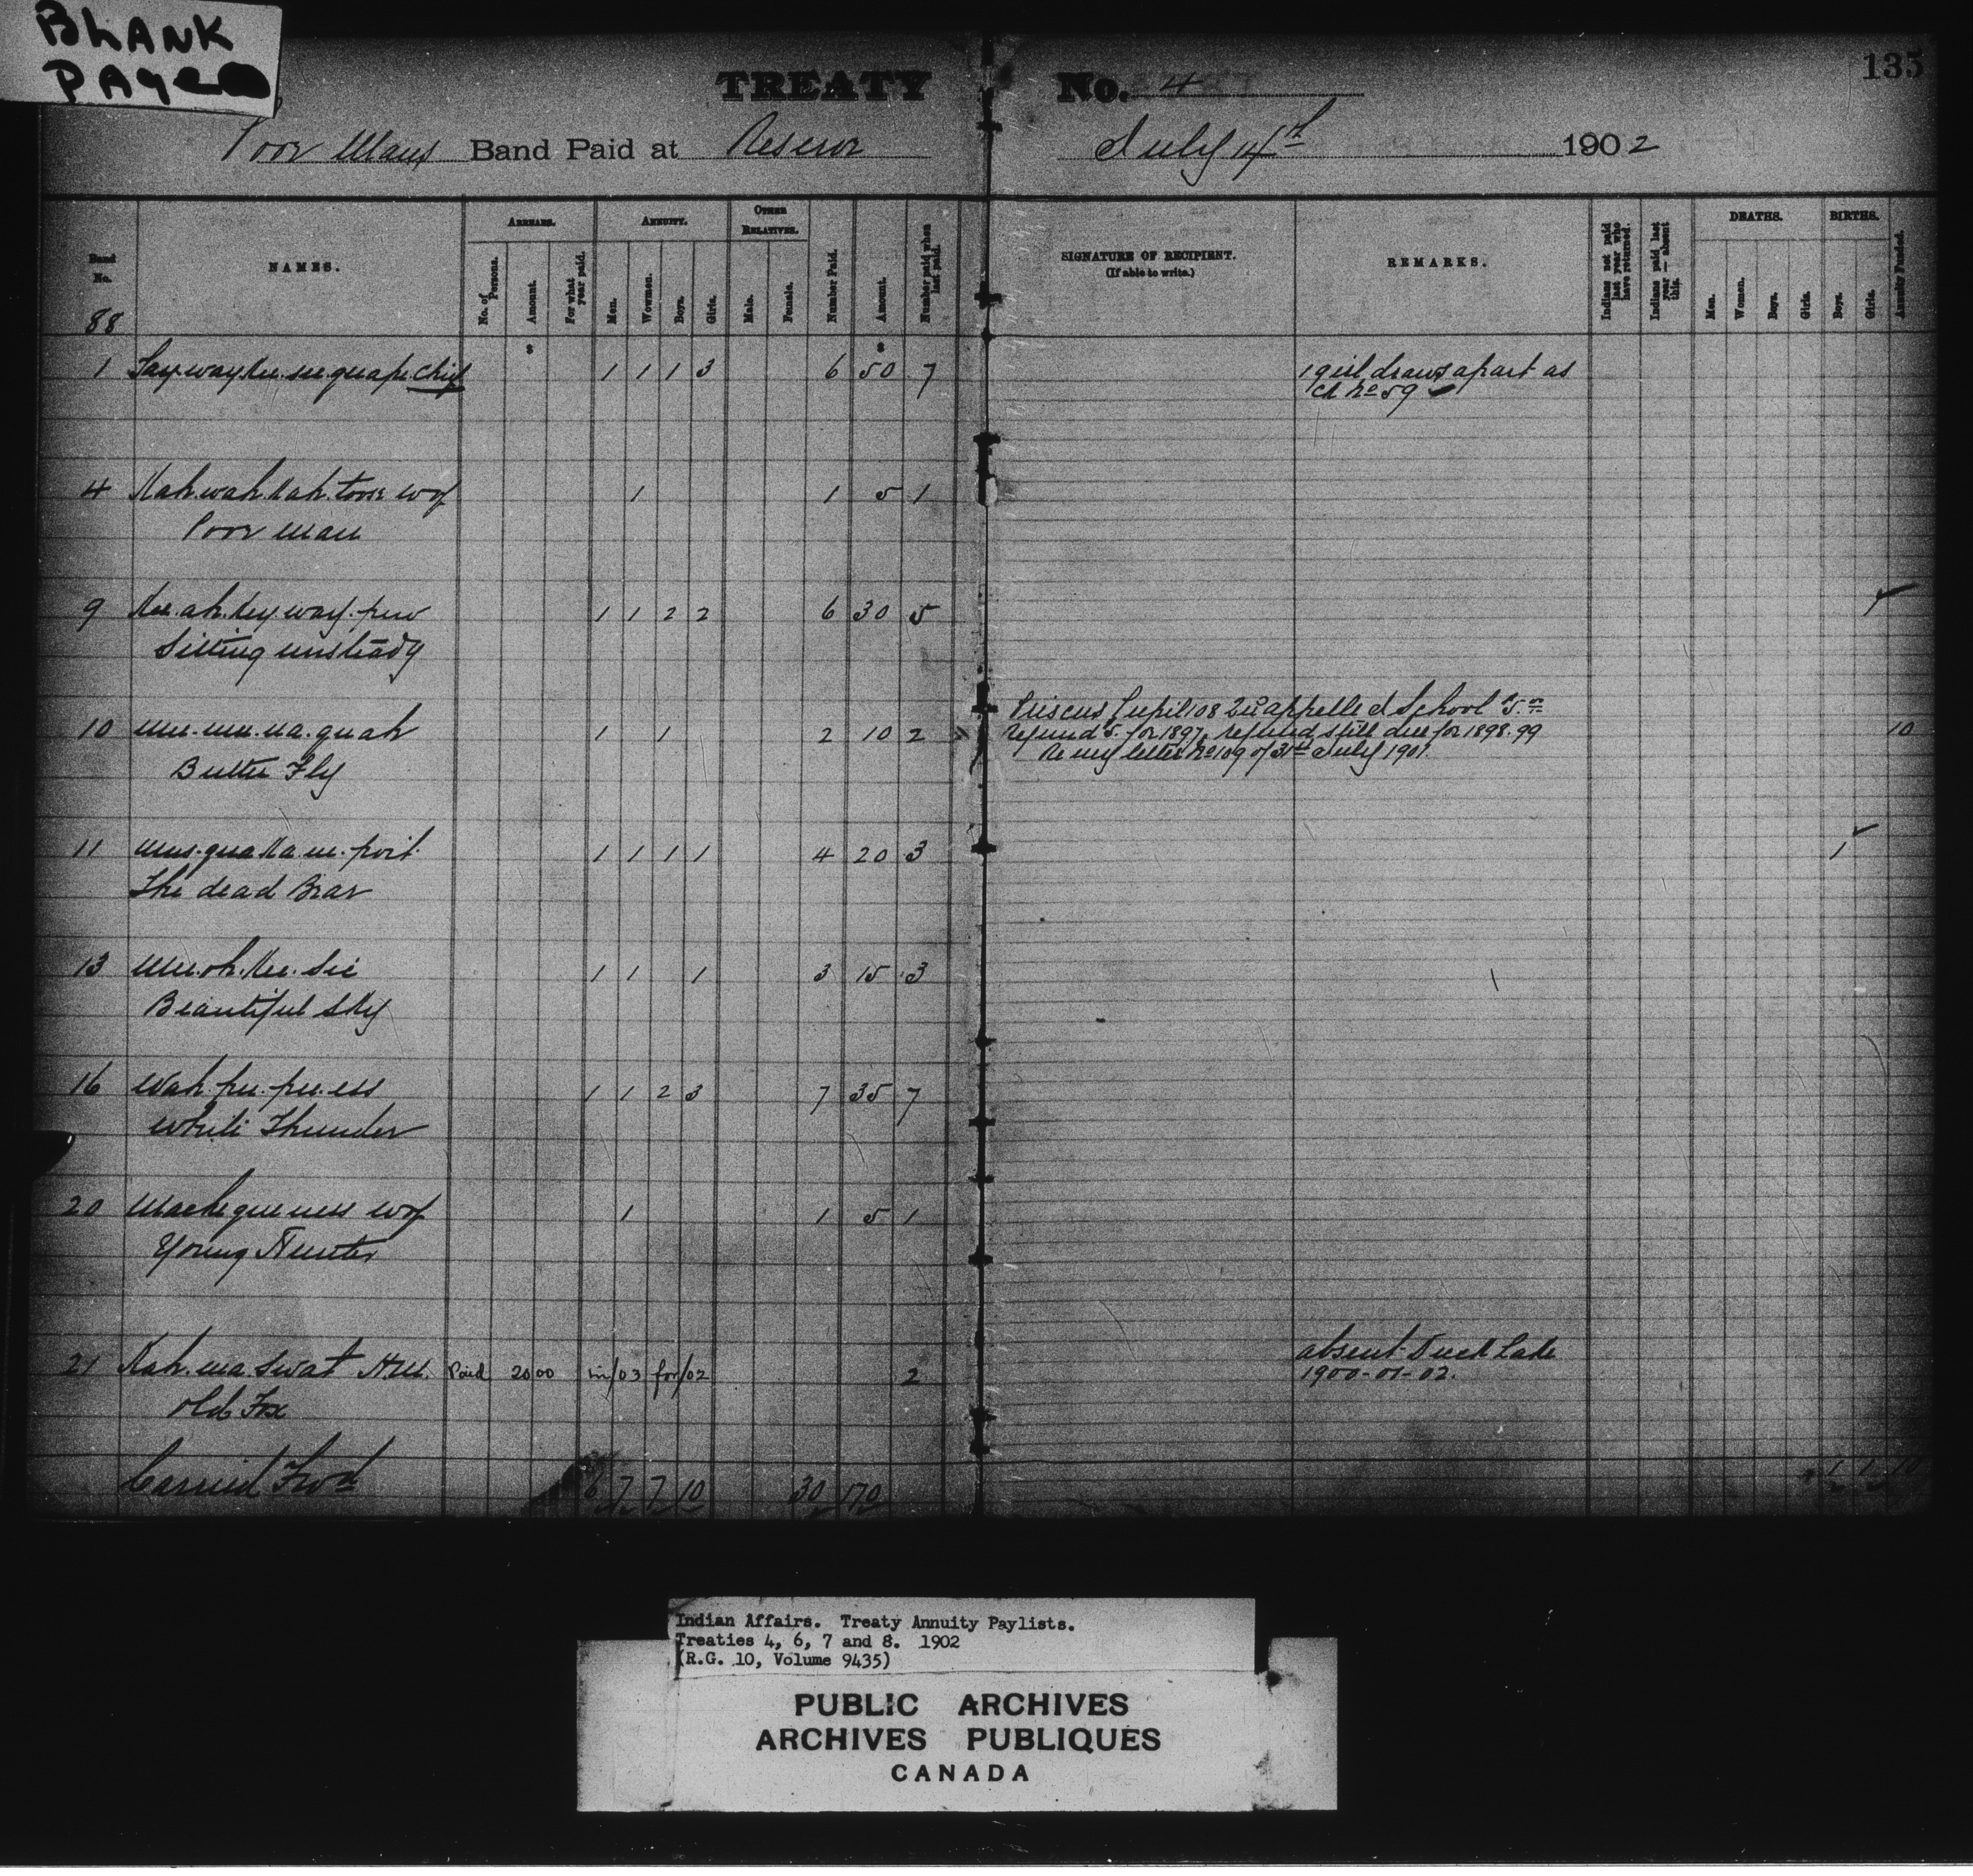 BLANK
PAGE
135
TREATY No. 4
Poor Mans Band Paid at Reserve July 14th 1902
Band No. NAMES. ARREARS. ANNUITY. OTHER RELATIVES. Number Paid. Amount. Number paid when last paid. SIGNATURE OF RECIPIENT. (If able to write.) REMARKS. Indians not paid last year who have returned. Indians paid last year — absent this. DEATHS. BIRTHS. Annuity Funded.
No. of Persons. Amount. For what year paid. Men. Women. Boys. Girls. Male. Female. Men. Women. Boys. Girls. Boys. Girls.
88
$ $
1 Say.way.kee.see.quape Chief 1 1 1 3 6 50 7 1 girl draws apart as
Ch No 59
4 Kah.wah.kah.toose wof 1 1 5 1
Poor man
9 Kee.ah.key.way.pew 1 1 2 2 6 30 5 1
Sitting unsteady
10 mee.mee.na.quah 1 1 2 10 2 Priscus pupil 108 Qu'appelle I School $5.00
Butter Fly refund $5. for 1897, refund still due for 1898.99 10
Re my letter No 109 of 31st July 1901.
11 mus.qua.ka.ne.poit 1 1 1 1 4 20 3 1
The dead Bear
13 mee.oh.kee.sic 1 1 1 3 15 3
Beautiful Sky
16 Wah.pee.pee.ess 1 1 2 3 7 35 7
White Thunder
20 Machequeness wof 1 1 5 1
Young Hunter
21 Kah.ma.swat H.M. Paid 20 00 in/03 for/02 2 absent Duck Lake
Old Fox 1900-01-02.
Carried Fwd 6 7 7 10 30 170 1 1 10
Indian Affairs. Treaty Annuity Paylists.
Treaties 4, 6, 7 and 8. 1902
(R.G. 10, Volume 9435)
PUBLIC ARCHIVES
ARCHIVES PUBLIQUES
CANADA